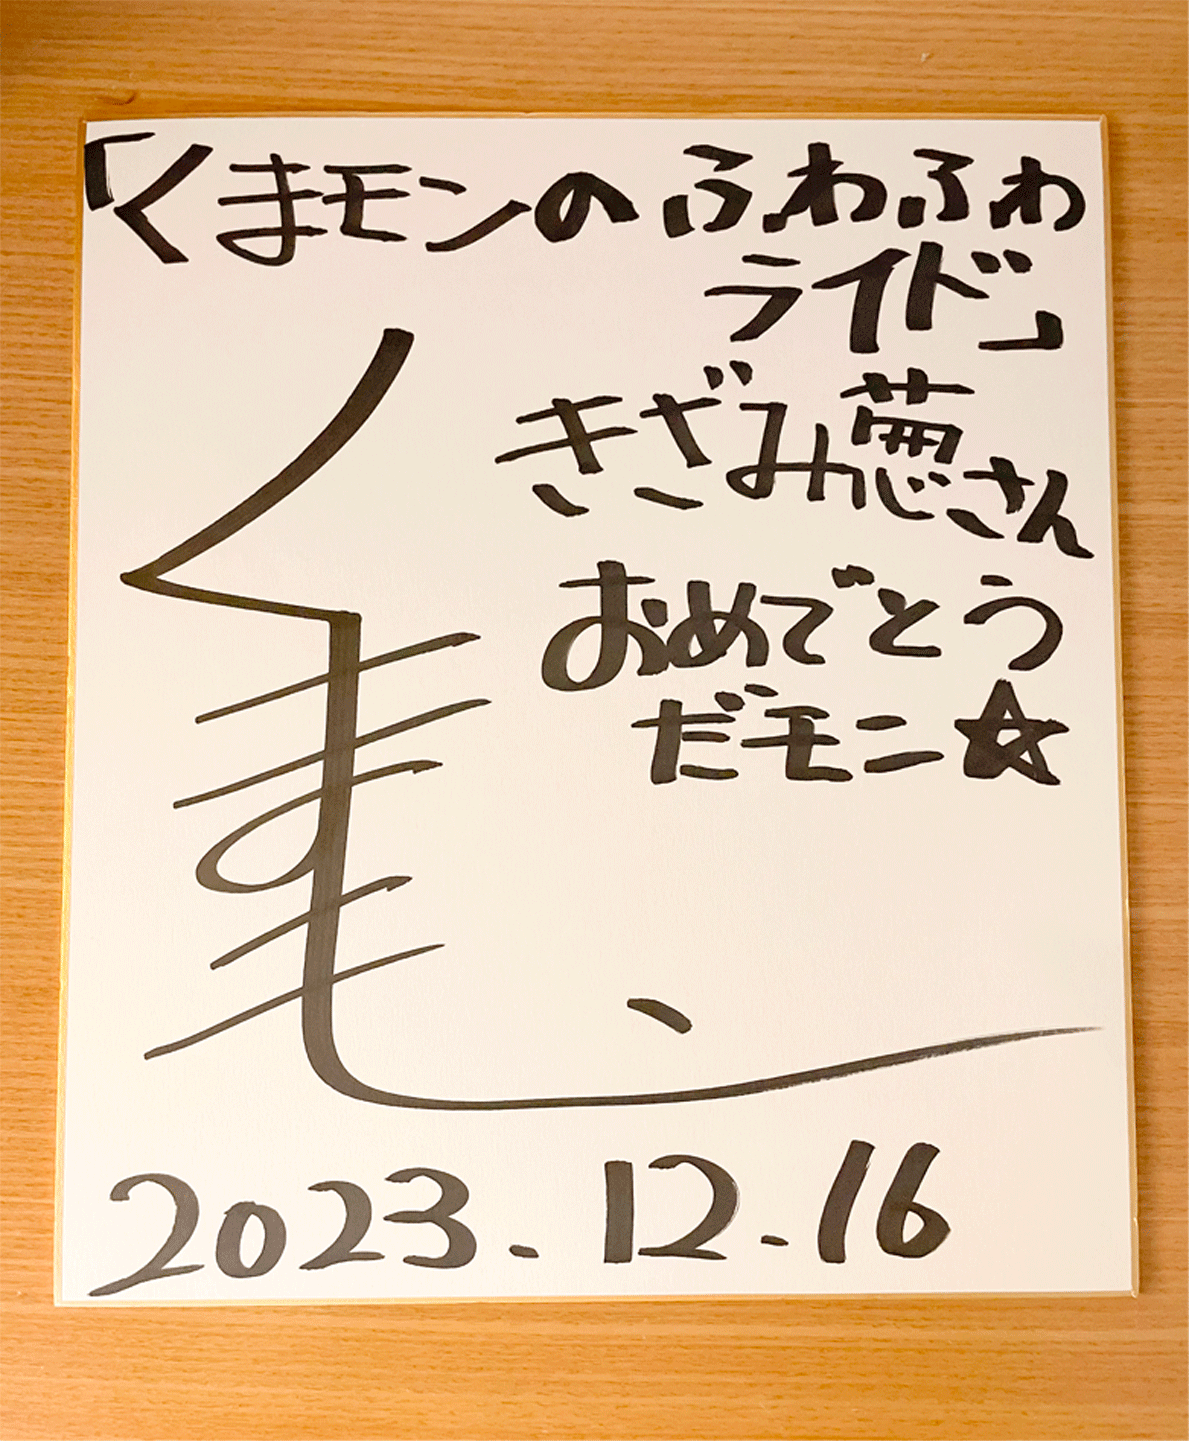 「くまモンのふわふわ
ライド」
きざみ葱さん
おめでとう
だモン☆
くまモン
2023.12.16